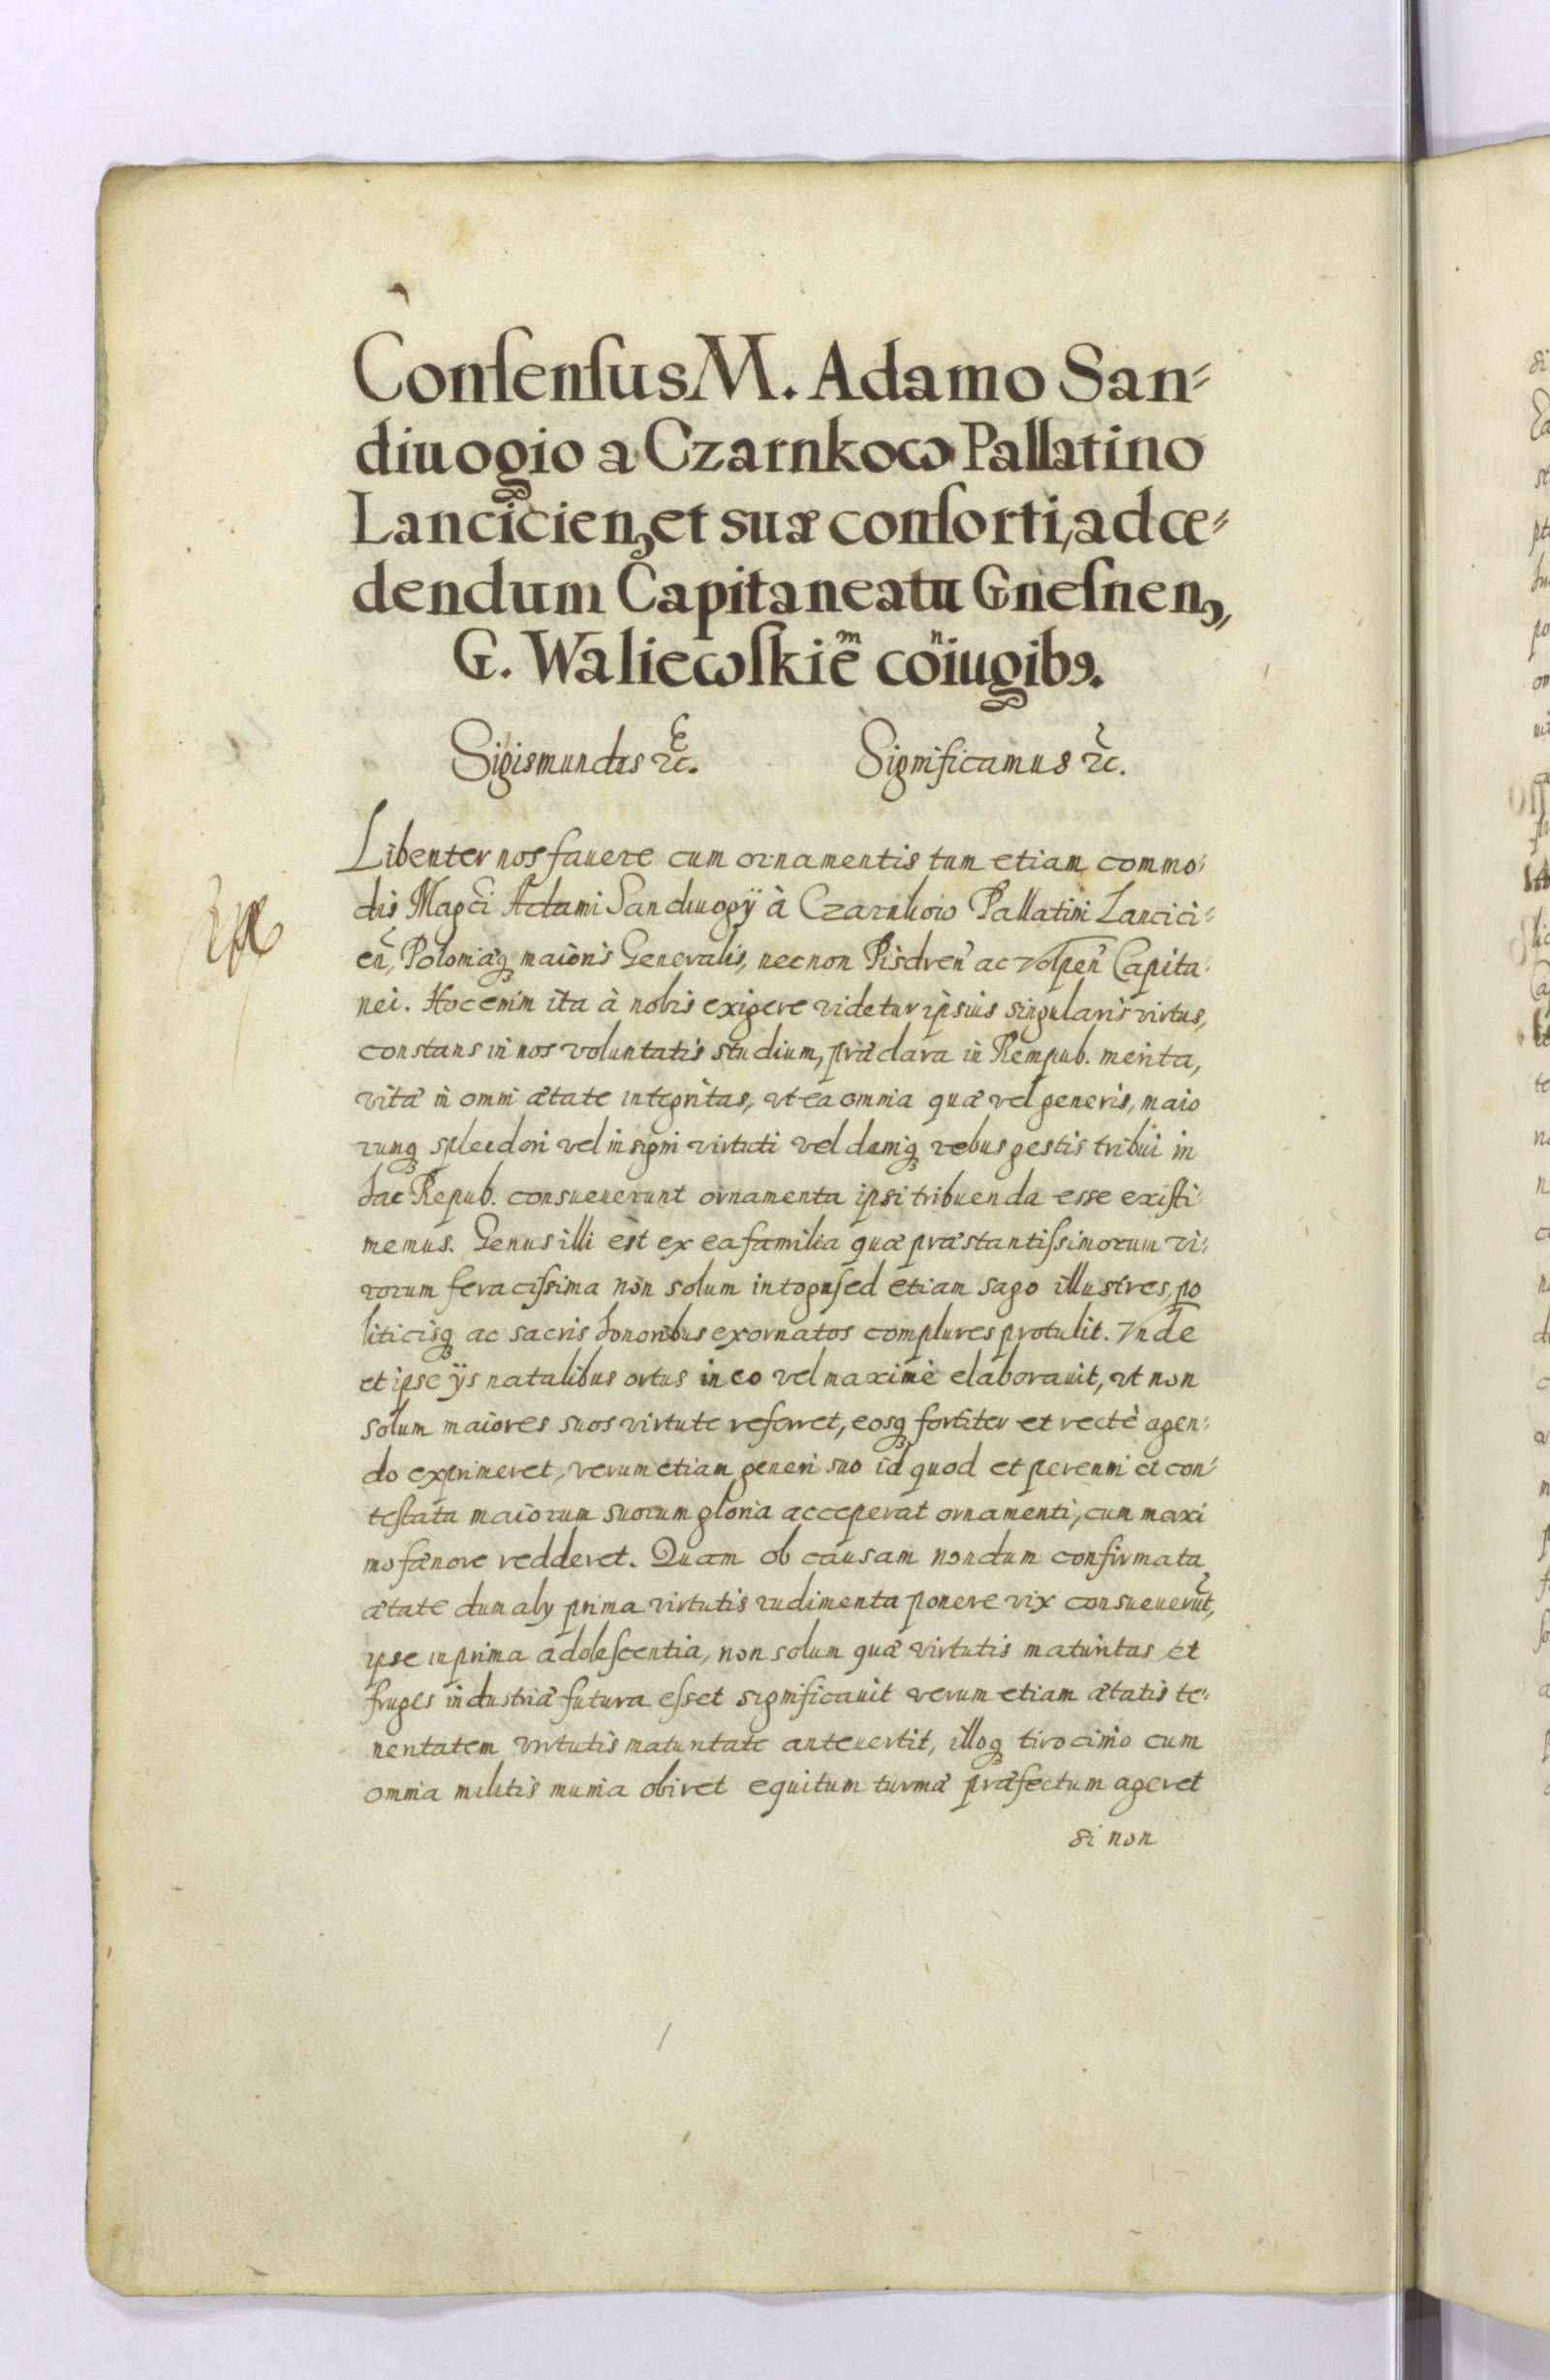 Conſenſus M. Adamo San⸗
diuogio a Czarnkow Pallatino
Lancicien, et suæ conſorti, ad ce⸗
dendum Capitaneatu Gneſnen,
G. Waliewſkiem̃ coniugibꝯ.
Sigismundus ꝛc. Significamus ꝛc.
Libenter nos fauere cum ornamentis tum etiam commo:
dis Magci Adami Sandiuogÿ à Czarnkow Pallatini Lancici:
eñ, Poloniæq maioris Generalis, necnon Pisdreñ ac Volpeñ Capita:
nei. Hoc enim ita à nobis exigere videtur ipsius singularis virtus,
constans in nos voluntatis studium, præclara in Rempub. merita,
vitæ in omni ætate integritas, vt ea omnia quæ vel generis, maio
rumq spledori vel insigni virtuti vel deniq rebus gestis tribui in
hac Repub. consueuerunt ornamenta ipsi tribuenda esse exiſti:
memus. Genus illi est ex ea familia quæ præstantiſsimorum vi:
rorum feraciſsima non solum in toga sed etiam sago illustres, po
liticisq ac sacris honoribus exornatos complures protulit. Vnde
et ipse ÿs natalibus ortus in eo vel maximè elaborauit, vt non
solum maiores suos virtute referret, eosq fortiter et rectè agen:
do exprimeret, verum etiam generi suo id quod et perenni et con:
teſtata maiorum suorum gloria acceperat ornamenti, cum maxi
mo fænore redderet. Quam ob causam nondum confirmata
ætate dum aly prima virtutis rudimenta ponere vix consueuerũt,
ipse in prima adoleſcentia, non solum quæ virtutis maturitas et
fruges industriæ futura eſset significauit verum etiam ætatis te:
neritatem virtutis maturitate anteuertit, illoq tirocinio cum
omnia militis munia obiret equitum turmæ præfectum ageret
si non